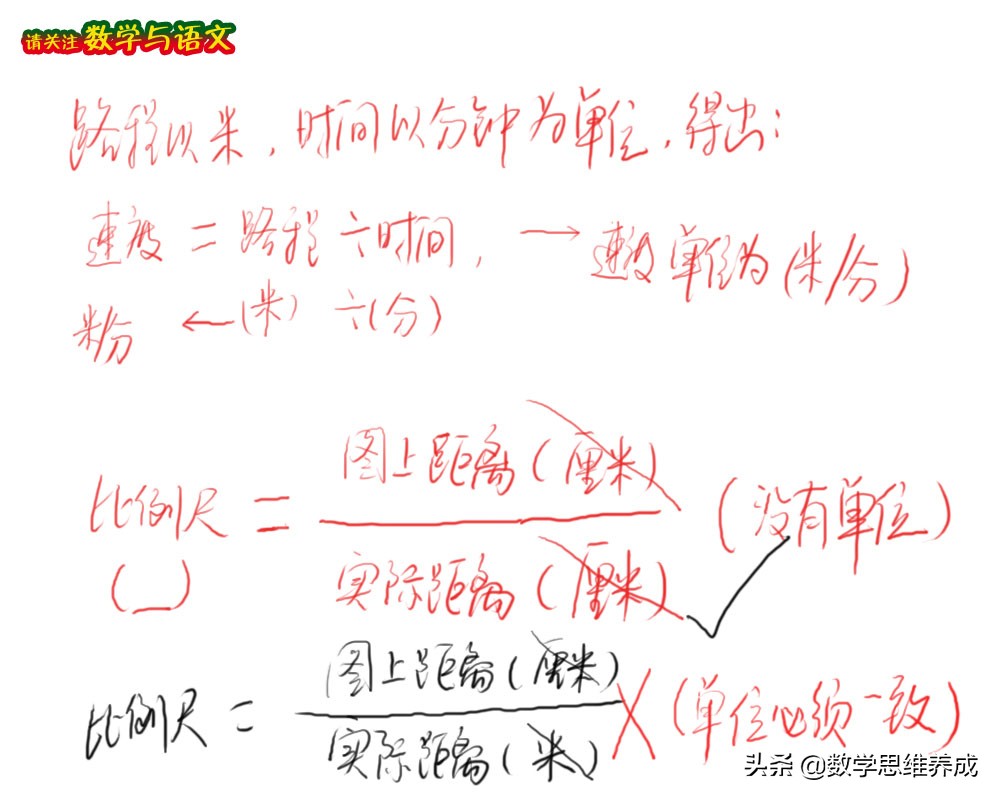 请关注 数学与语文
路程以米，时间以分钟为单位，得出：
速度 = 路程 ÷ 时间， → 速度单位为(米/分)
米/分 ← (米) ÷ (分)
图上距离(厘米)
比例尺 = (没有单位)
(—)
实际距离(厘米)
图上距离(厘米)
比例尺 = ×(单位必须一致)
实际距离(米)
头条 @数学思维养成